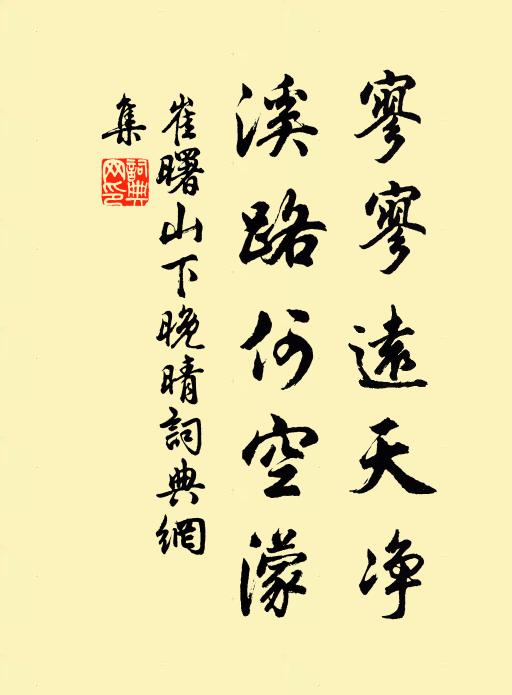 寥寥遠天净
溪路何空濛
崔曙山下晚晴詞典網
集
詞典網印